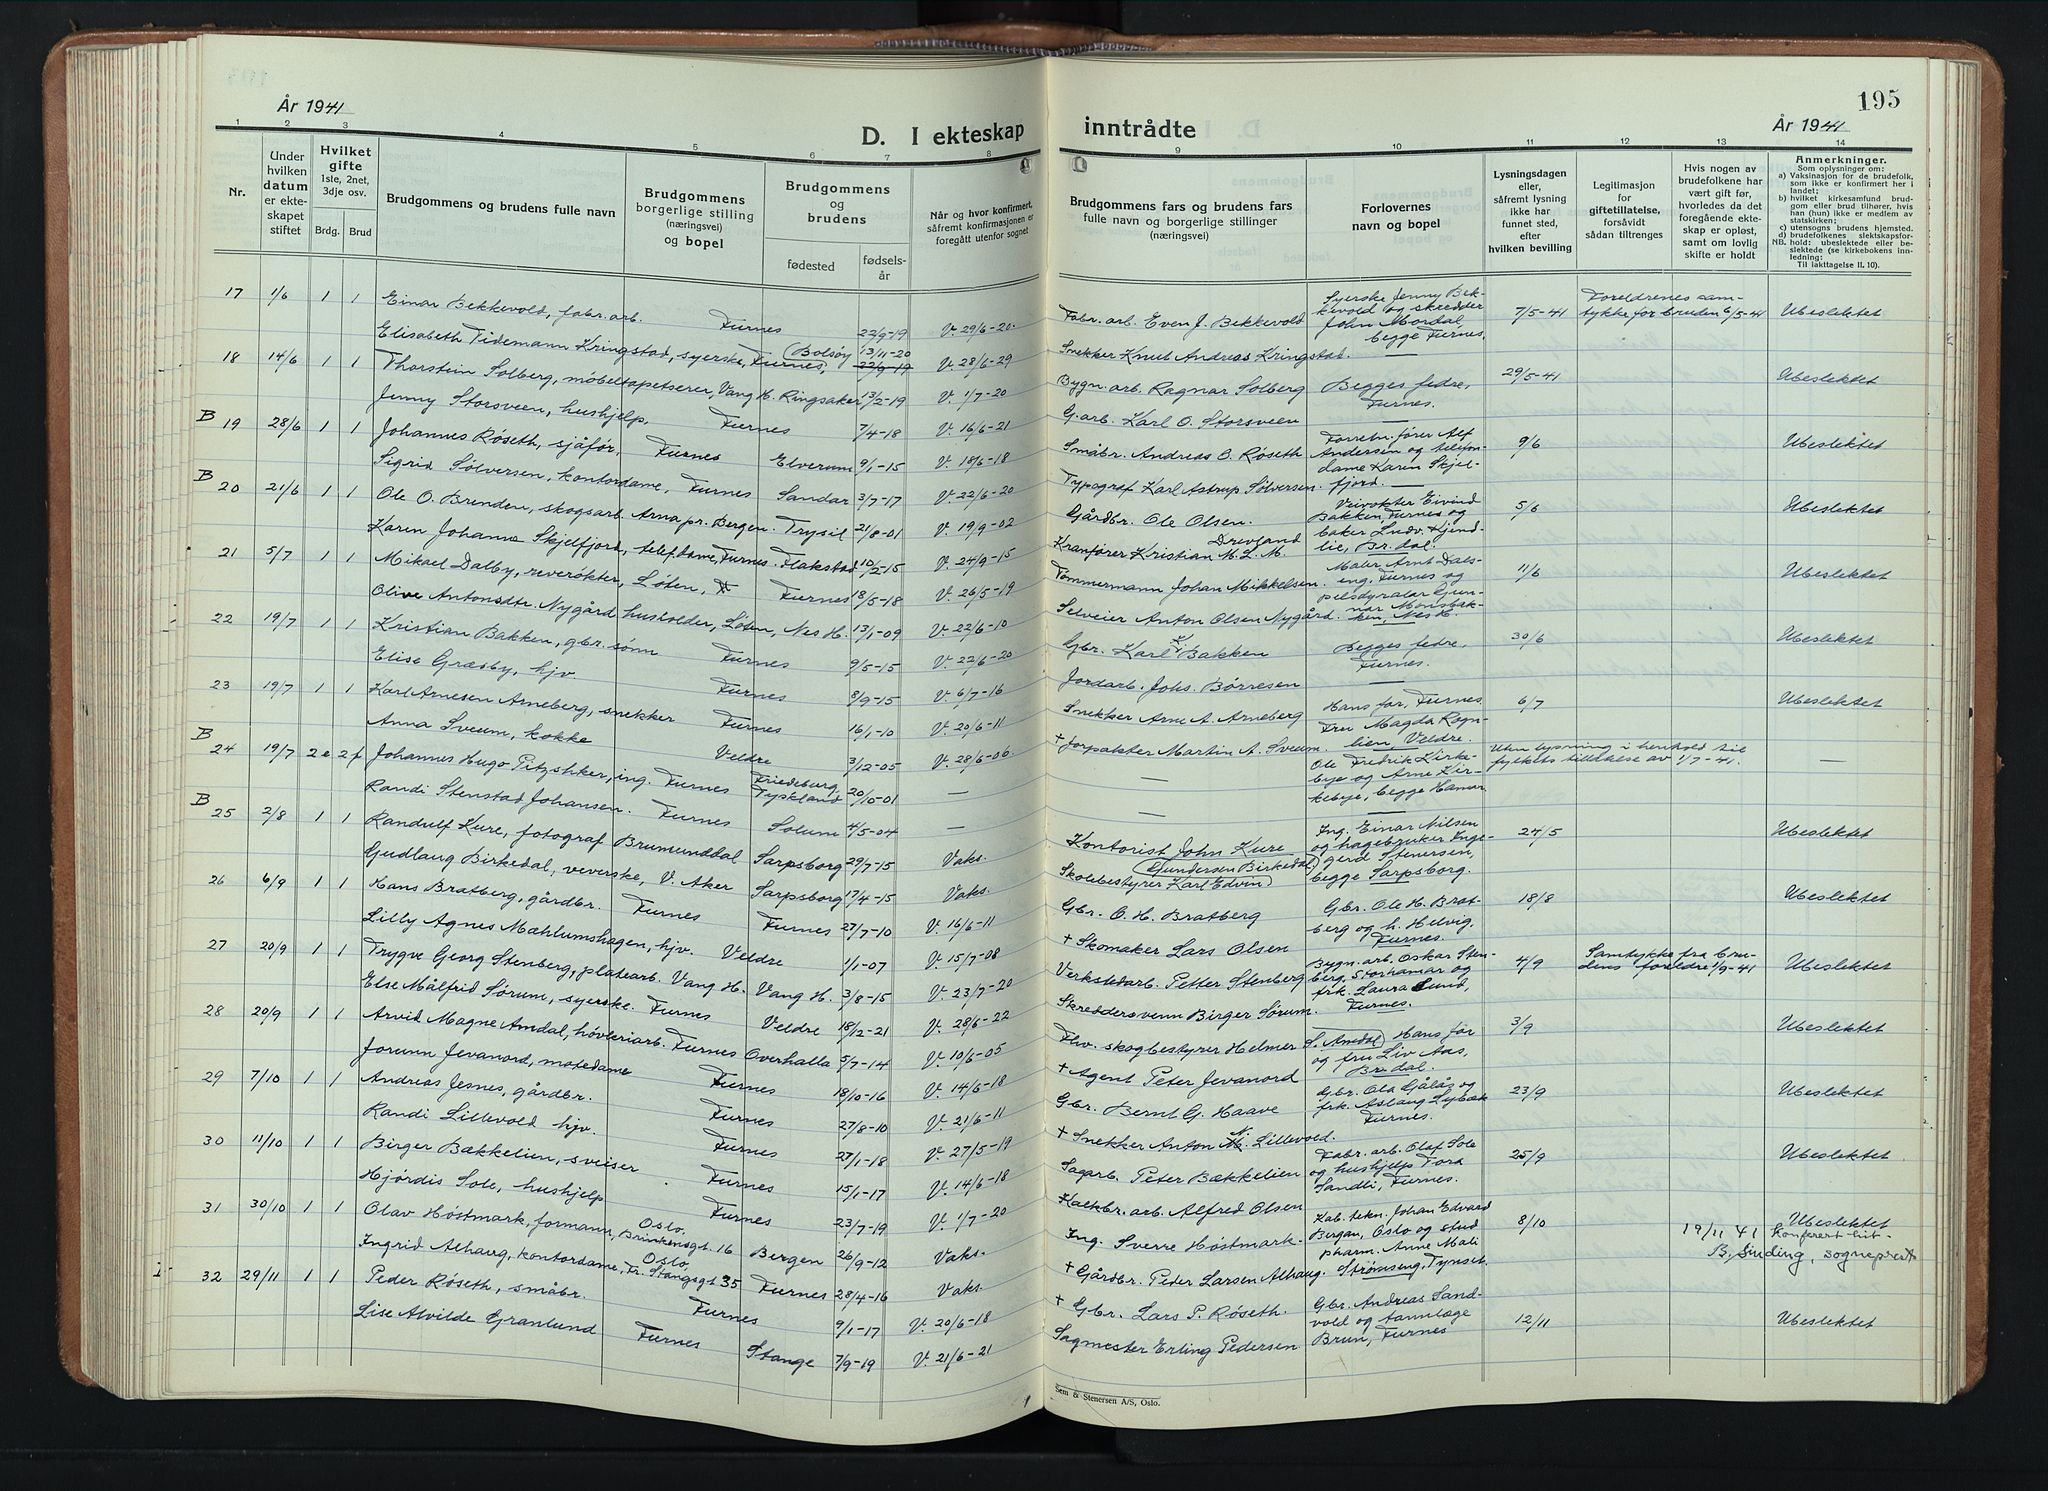 195
År 1941
År 1941
D. I ekteskap inntrådte
1 2 3 4 5 6 7 8 9 10 11 12 13 14
Nr.
Under hvilken datum er ekteskapet stiftet
Hvilket gifte 1ste, 2net, 3dje osv.
Brdg. Brud
Brudgommens og brudens fulle navn
Brudgommens borgerlige stilling (næringsvei) og bopel
Brudgommens og brudens
fødested
fødselsår
Når og hvor konfirmert, såfremt konfirmasjonen er foregått utenfor sognet
Brudgommens fars og brudens fars fulle navn og borgerlige stillinger (næringsvei)
Forlovernes navn og bopel
Lysningsdagen eller, såfremt lysning ikke har funnet sted, efter hvilken bevilling
Legitimasjon for giftetillatelse, forsåvidt sådan tiltrenges
Hvis nogen av brudefolkene har vært gift før, hvorledes da det foregående ekteskap er opløst, samt om lovlig skifte er holdt
Anmerkninger.
Som oplysninger om:
a) Vaksinasjon for de brudefolk, som ikke er konfirmert her i landet;
b) hvilket kirkesamfund brudgom eller brud tilhører, hvis han (hun) ikke er medlem av statskirken;
c) utensogns brudens hjemsted.
d) brudefolkenes slektskapsforhold: ubeslektede eller beslektede (se kirkebokens innledning:
NB.
Til iakttagelse II. 10).
17 1/6 1 1 Einar Bekkevold, fabr.arb. Furnes 22/9-19 V. 29/6-20. Fabr. arb. Even J. Bekkevold Syerske Jenny Bekkevold og skredder John Mordal, begge Furnes. 7/5-41 Foreldrenes samtykke for bruden 6/5-41 Ubeslektet
Elisabeth Tidemann Kringstad, syerske, Furnes, Bolsøy 13/11-20 22/9-19 V. 28/6-29 Snekker Knut Andreas Kringstad. —
18 14/6 1 1 Thorstein Solberg, møbeltapetserer, Vang H. Ringsaker 13/2-19 V. 1/7-20 Bygn. arb. Ragnar Solberg Begges fedre, Furnes. 29/5-41 Ubeslektet
Jenny Storsveen, hushjelp, Furnes 7/4-18 V. 16/6-21 G.arb. Karl O. Storsveen —
B 19 28/6 1 1 Johannes Røseth, sjåfør, Furnes Elverum 9/1-15 V. 18/6-18 Småbr. Andreas O. Røseth Forretn.fører Alf Andersen og telefondame Karen Skjelfjord. 9/6 Ubeslektet
Sigrid Sølversen, kontordame, Furnes Sandar 3/7-17 V. 22/6-20 Typograf Karl Astrup Sølversen —
B 20 21/6 1 1 Ole O. Brenden, skogsarb. Arna pr. Bergen. Trysil 21/8-01 V. 19/9-02 Gårdbr. Ole Olsen. Veivokter Eivind Bakken, Furnes og baker Ludv. Kjendlie, Br.dal. 5/6 Ubeslektet
Karen Johanne Skjelfjord, telef.dame, Furnes. Flakstad 10/2-15 V. 24/9-15 Kranfører Kristian M. L. M. Drevland
21 5/7 1 1 Mikael Dalby, reverøkter, Løten, Furnes 18/5-18 V. 26/5-19 Tømmermann Johan Mikkelsen. Maler Arnt Dalseng, Furnes og pelsdyralar Gunnar Monsbakken, Nes H. 11/6 Ubeslektet
Olive Antonsdtr. Nygård husholder, Løten, Nes H. 13/1-09 V. 22/6-10 Selveier Anton Olsen Nygård.
22 19/7 1 1 Kristian Bakken, gbr. sønn Furnes 9/5-15 V. 22/6-20 Gbr. Karl K. Bakken Begges fedre, Furnes. 30/6 Ubeslektet
Elise Græsby, hjv Furnes 8/9-15 V. 6/7-16 Jordarb. Johs. Børresen —
23 19/7 1 1 Karl Arnesen Arneberg, snekker Furnes 16/1-10 V. 20/6-11 Snekker Arne A. Arneberg Hans far, Furnes. Fru Magda Rognlien, Veldre. 6/7 Ubeslektet
Anna Sveum, kokke Veldre 3/12-05 V. 28/6-06. + Forpakter Martin A. Sveum.
B 24 19/7 2e 2f Johannes Hugo Pitzshker, ing. Furnes Friedeburg, Tyskland 20/10-01 — — Ole Fredrik Kirkebye og Arne Kirkebye, begge Hamar. Uten lysning i henhold til fylkets tillatelse av 1/7-41. —
Randi Stenstad Johansen. Furnes Solum 4/5-04 — — —
B 25 2/8 1 1 Randulf Kure, fotograf Brumunddal Sarpsborg 29/7-15 Vaks. Kontorist John Kure Ing. Einar Nilsen og hagebruker Ingegerd Stenersen, begge Sarpsborg. 24/5 Ubeslektet
Gudlaug Birkedal, veverske, V. Aker Sarpsborg 17/4-15 Vaks. Skolebestyrer Karl Edvin Gundersen Birkedal
26 6/9 1 1 Hans Bratberg, gårdbr. Furnes Furnes 27/7-10 V. 16/6-11 Gbr. O. H. Bratberg Gbr. Ole H. Bratberg og h. Helvig, Furnes. 18/8 Ubeslektet
Lilly Agnes Mæhlumshagen, hjv. Veldre 1/1-07 V. 15/7-08 + Skomaker Lars Olsen
27 20/9 1 1 Trygve Georg Stenberg, platearb. Vang H. Vang H. 3/8-15 V. 23/7-20 Verkstedarb. Petter Stenberg Bygn. arb. Oskar Stenberg, Storhamar og frk. Laura Lund, Furnes. 4/9 Samtykke fra brudens foreldre 1/9-41 Ubeslektet
Else Målfrid Sørum, syerske. Furnes Veldre 18/12-21 V. 28/6-22 Skreddersvenn Birger Sørum.
28 20/9 1 1 Arvid Magne Amdal, høvleriarb. Furnes Overhalla 5/7-14 V. 10/6-05 Fhv. skogbestyrer Helmer S. Amdal Hans far og fru Liv Aas, Br.dal. 3/9 Ubeslektet
Jorunn Jevanord, motedame Furnes 18/10-16 V. 14/6-18 + Agent Peter Jevanord
29 7/10 1 1 Andreas Jesnes, gårdbr. Furnes 27/8-10 V. 21/6-11 Gbr. Bernt G. Haave Gbr. Ola Gålås og frk. Aslaug Lybæk Furnes. 23/9 Ubeslektet
Randi Lillevold hjv. Furnes 27/1-18 V. 27/5-19 + Snekker Anton N. Lillevold.
30 11/10 1 1 Birger Bækkelien, sveiser Furnes 15/1-17 V. 14/6-18 Sagarb. Peter Bækkelien Fabr. arb. Olaf Sole og hushjelp Tora Sandli, Furnes. 25/9 Ubeslektet
Hjørdis Sole, hushjelp Furnes 23/7-19 V. 1/7-20 Kalkbr. arb. Alfred Olsen
31 30/10 1 1 Olav Høstmark, formann, Oslo, Brinkensgt. 16 Bergen 26/9-12 Vaks. Ing. Sverre Høstmark Lab. tekn. Johan Edvard Bergan, Oslo og stud. pharm. Anne Mali Strømseng, Tynset. 8/10 Ubeslektet
19/11 41 Konferert hit B. Sinding, sogneprest
Ingrid Alhaug, kontordame, Oslo, Fr. Stangsgt 35 Furnes 28/4-16 Vaks. + Gårdbr. Peder Larsen Alhaug.
32 29/11 1 1 Peder Røseth, småbr. Furnes 9/1-17 V. 20/6-18 + Gbr. Lars P. Røseth. Gbr. Andreas Sandvold og tannlæge Brun, Furnes 12/11 Ubeslektet
Lise Alvilde Granlund Furnes Stange 7/9-19 V. 21/6-21 Sagmester Erling Pedersen
Sem & Stenersen A/S, Oslo.